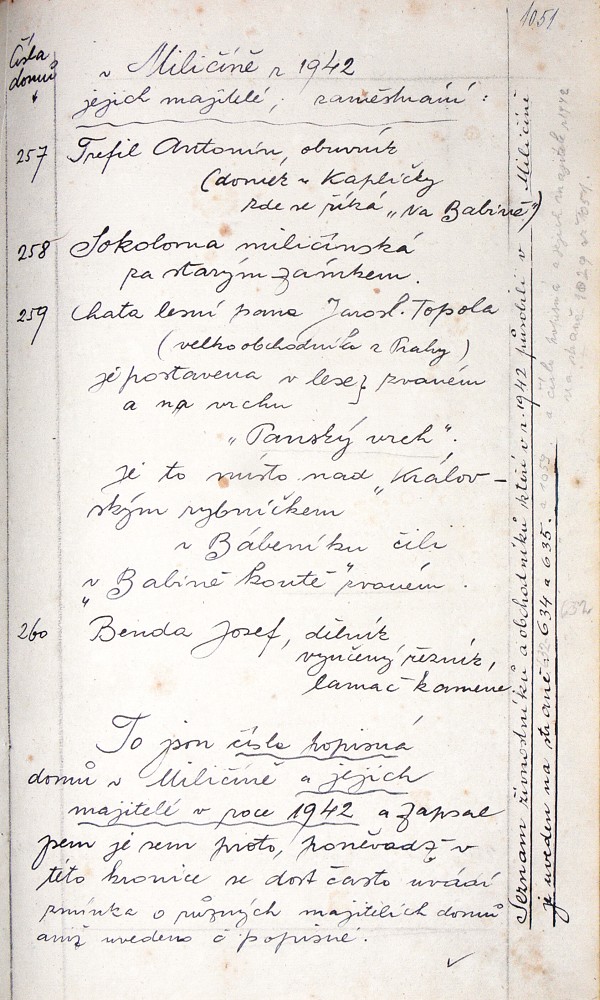 1051
Čísla
domů
v Miličíně r 1942
jejich majitelé, zaměstnání:
257 Trefil Antonín, obuvník
(domek u Kapličky
zde se říká „Na Babině")
258 Sokolovna miličínská
za starým zámkem.
259 Chata lesní pana Jarosl. Topola
(velkoobchodníka z Prahy)
je postavena v lese zvaném
a na vrchu
„Panský vrch".
Je to místo nad „Králov-
ským rybníčkem
v Bábeníku čili
v „Babině koutě" zvaném.
260 Benda Josef, dělník
vyučený řezník,
lamač kamene
To jsou čísla popisná
domů v Miličíně a jejich
majitelé v roce 1942 a zapsal
jsem je sem proto, poněvadž v
této kronice se dost často uvádí
zmínka o různých majitelích domů
aniž uvedeno č popisné.
Seznam živnostníků a obchodníků, kteří v r. 1942 působili v Miličíně
je uveden na straně 634 a 635.
a čísla popisná a jejich majitelé r. 1942
na straně 1029 až 1051.
632